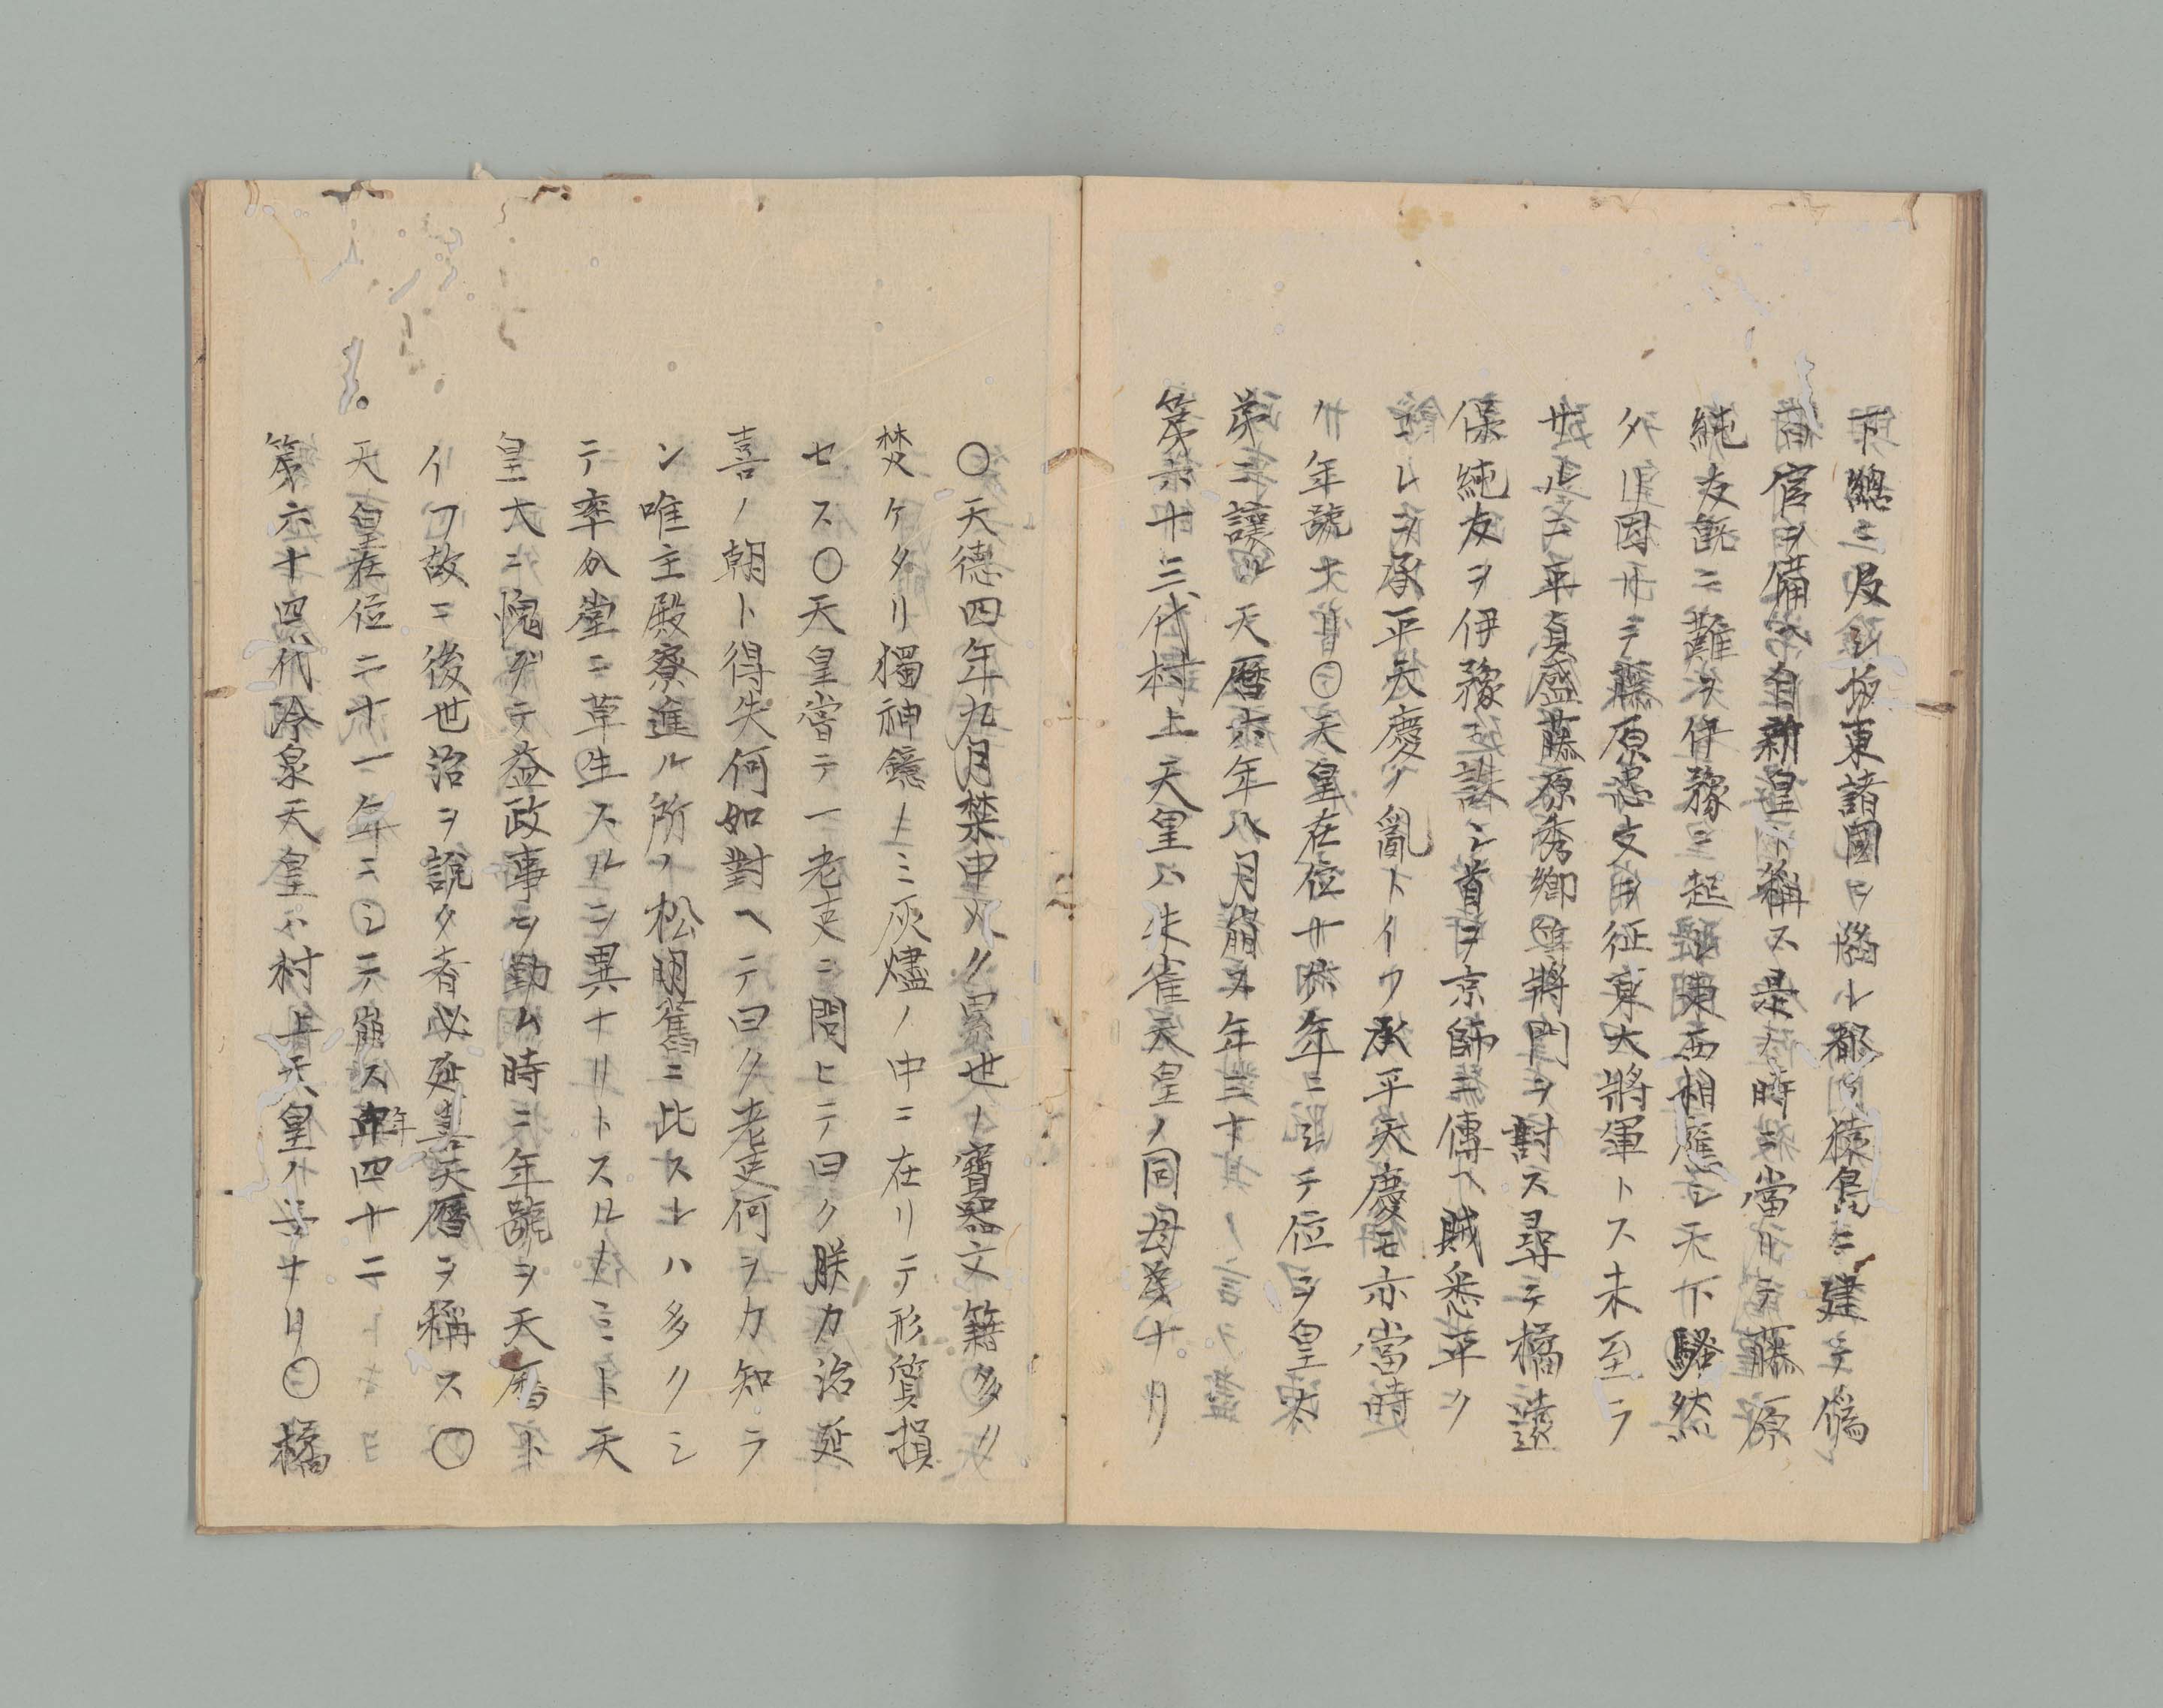 下總ニ及シ坂東諸國ヲ陥レ都ヲ猿島ニ建テ僞
百官ヲ備ヘ自新皇ト稱ス是ノ時ニ當リテ藤原
純友既ニ難ヲ伊豫ニ起シ東西相應シ天下騷然
タリ因テ藤原忠文ヲ征東大將軍トス未至ラ
サルニ平貞盛藤原秀郷等將門ヲ討ス尋テ橘遠
保純友ヲ伊豫ニ誅シ首ヲ京師ニ傳ヘ賊悉平ク
コレヲ承平天慶ノ亂トイウ承平天慶モ亦當時
ノ年號ナリ〇天皇在位十六年ニシテ位ヲ皇太
弟ニ讓ル天曆六年八月崩ス年三十
第六十三代村上天皇ハ朱雀天皇ノ同母弟ナリ
〇天德四年九月禁中火アリ累世ノ寶器文籍多ク
焚ケタリ獨神鏡ノミ灰燼ノ中ニ在リテ形質損
セス〇天皇嘗テ一老吏ニ問ヒテ曰ク朕カ治延
喜ノ朝ト得失何如對ヘテ曰ク老吏何ヲカ知ラ
ン唯主殿寮進ル所ノ松明舊ニ比スレハ多クシ
テ率分堂ニ草生スルヲ異ナリトスルノミト天
皇大ニ愧テ益政事ヲ勤ム時ニ年號ヲ天曆ト
イフ故ニ後世治ヲ說ク者必延喜天曆ヲ稱ス〇
天皇在位二十一年ニシテ崩ス年四十二
第六十四代冷泉天皇ハ村上天皇ノ子ナリ〇橘